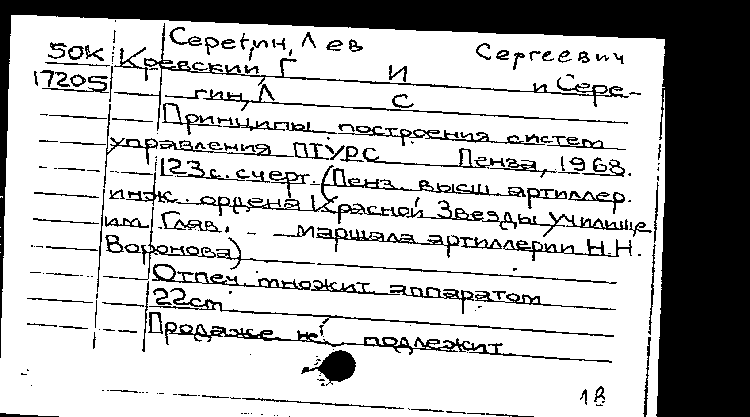 Серегин, Лев Сергеевич
50К Кревский, Г И и Сере-
17205 гин, Л С
Принципы построения систем
управления ПТУРС Пенза, 1968.
123с. счерт. (Пенз. высш. артиллер.
инж. ордена Красной Звезды училище
им Глав. маршала артиллерии Н.Н.
Воронова)
Отпеч. множит. аппаратом
22cm
Продаже не подлежит
18